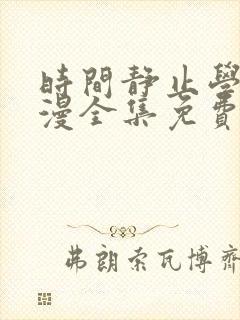 時間靜止學
漫全集免費
弗朗索瓦博齊